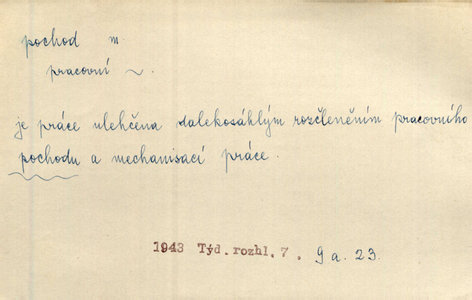 pochod m
pracovní ~.
je práce ulehčena dalekosáhlým rozčleněním pracovního
pochodu a mechanisací práce.
1943 Týd. rozhl. 7. 9 a. 23.